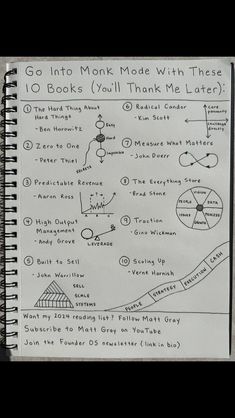 Go Into Monk Mode With These
10 Books (You'll Thank Me Later):
① The Hard Thing About
Hard Things
- Ben Horowitz
Easy
Hard
Impossible
② Zero to One
- Peter Thiel
SECRETS
③ Predictable Revenue
- Aaron Ross
④ High Output
Management
- Andy Grove
LEVERAGE
⑤ Built to Sell
- John Warrillow
SELL
SCALE
SYSTEMS
⑥ Radical Candor
- Kim Scott
care
personally
challenge
directly
⑦ Measure What Matters
- John Doerr
⑧ The Everything Store
- Brad Stone
⑨ Traction
- Gino Wickman
VISION
DATA
PROCESS
TRACTION
ISSUES
PEOPLE
⑩ Scaling Up
- Verne Harnish
PEOPLE
STRATEGY
EXECUTION
CASH
Want my 2024 reading list? Follow Matt Gray
Subscribe to Matt Gray on YouTube
Join the Founder OS newsletter (link in bio)